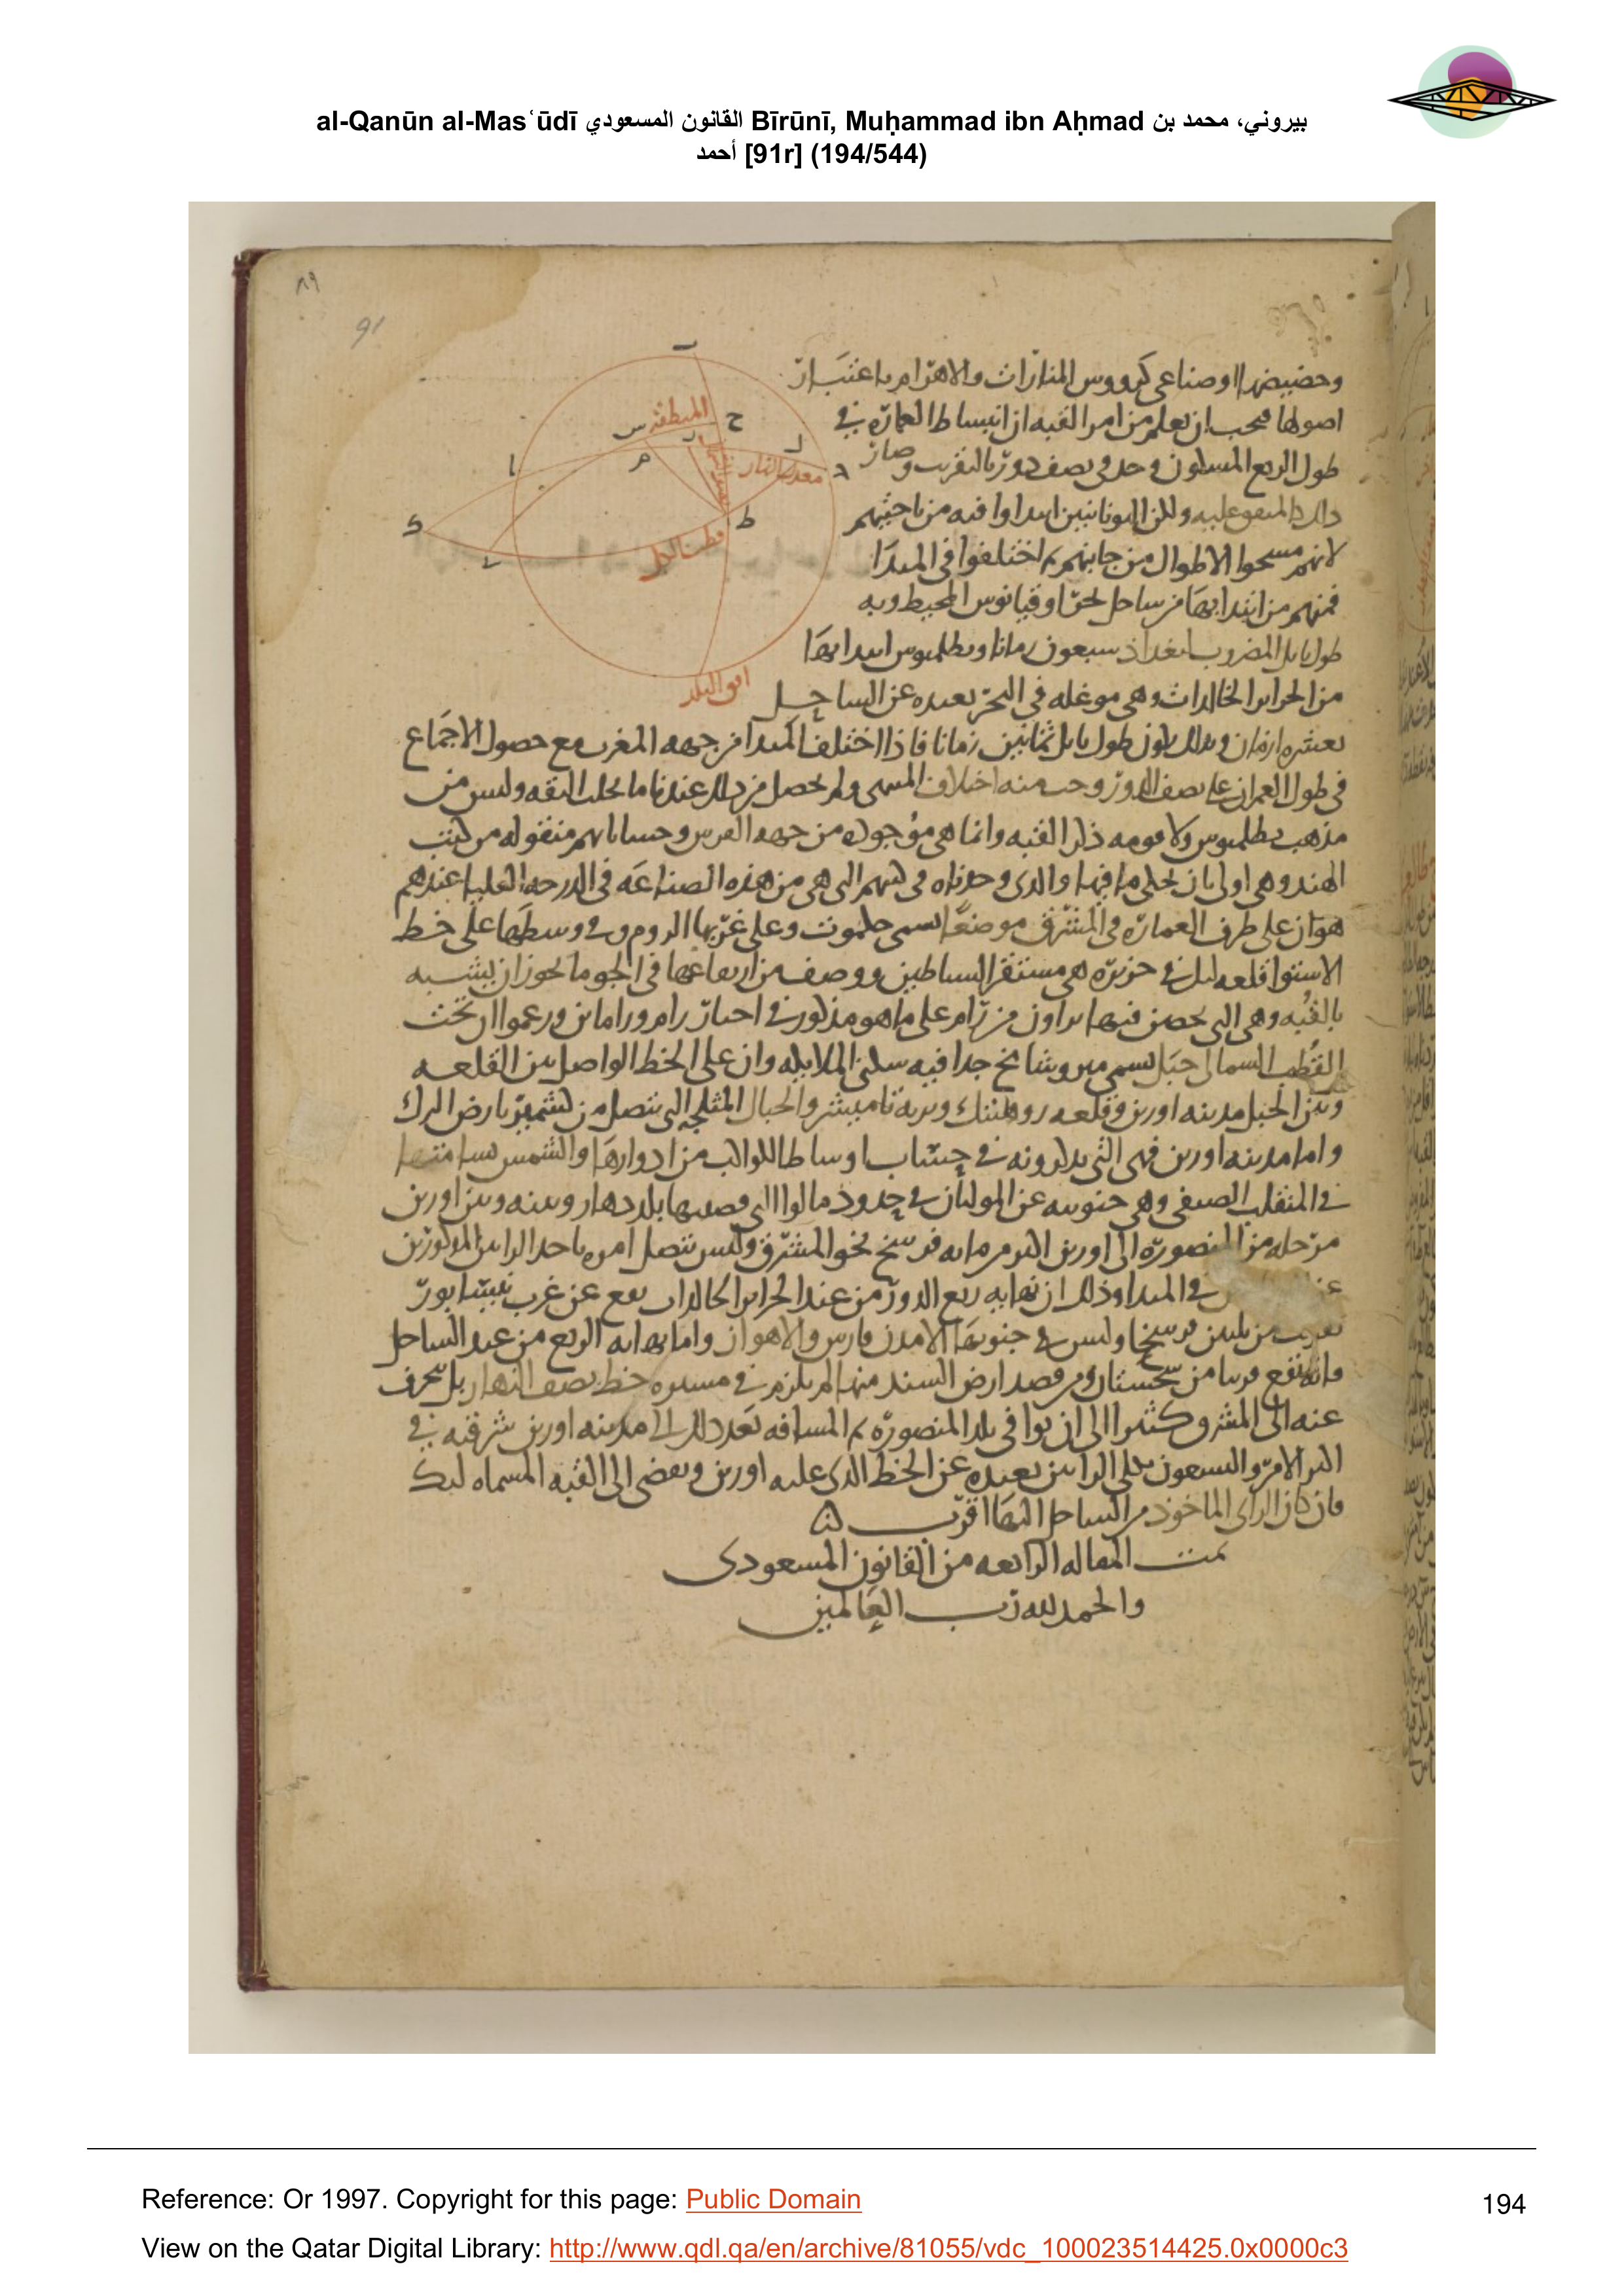 al-Qanūn al-Masʿūdī القانون المسعودي Bīrūnī, Muḥammad ibn Aḥmad بيروني، محمد بن
أحمد [91r] (194/544)
٨٩
91
وحضيضها او صناعى كرووس المنارات والاهرام باعتبار
اصولها فيجب ان يعلم من امر القبه ان انبساط العماره في
طول الربع المسكون وحد في نصف دور بالتقريب وصار
ذلك المتفق عليه ولكن اليونانيين ابتداوا فيه من ناحيتهم
لانهم مسحوا الاطوال من جانبهم ثم اختلفوا في المبدا
فمنهم من ابتدا بها من ساحل بحر اوقيانوس المحيط وبه
طول بابل المضروب لبغداد سبعون زمانا وبطلميوس ابتدا بها
من الجزاير الخالدات وهى موغله في البحر بعيده عن الساحل
بعشره ازمان وبذلك يكون طول بابل ثمانين زمانا فاذا اختلف المبدا من جهه المغرب مع حصول الاجماع
في طول العمران على نصف الدور وجب منه اختلاف المنتهى ولم يحصل من ذلك عندنا ما يجلب الثقه وليس من
مذهب بطلميوس ولا قومه ذكر القبه وانما هى موجوده من جهه الفرس وحساباتهم منقوله من كتب
الهند وهى اولى بان يحكى ما فيها والذى وجدناه في كتبهم التى هى من هذه الصناعه في الدرجه العليا عندهم
هو ان على طرف العماره في المشرق موضعا يسمى جمكوت وعلى غربها الروم وفي وسطها على خط
الاستوا قلعه لنك في جزيره هى مستقر الشياطين ووصف من ارتفاعها في الجو ما يجوز ان يشبه
بالقبه وهى التى تحصن فيها راون من رام على ما هو مذكور في اخبار رام وراماين وزعموا ان تحت
القطب الشمالى جبل يسمى ميرو شامخ جدا فيه سكنى الملايكه وان على الخط الواصل بين القلعه
وبين الجبل مدينه اوزين وقلعه روهيتك وبريه تانيشر والجبال المثلجه التى تتصل من كشمير بارض الترك
واما مدينه اوزين فهى التى يذكرونه في حساب اوساط الكواكب من ادوارها والشمس تسامتها
في المنقلب الصيفى وهى جنوبيه عن المولتان في حدود مالوا التى قصبتها بلد دهار وبينه وبين اوزين
مرحله من المنصوره الى اوزين اكثر من مايه فرسخ نحو المشرق وليس يتصل امره باحد الرايين المذكورين
في المبدا وذلك ان نهايه ربع الدور من عند الجزاير الخالدات يقع عن غرب نيسابور
بقريب من ثلثين فرسخا وليس في جنوبها الا مدن فارس والاهواز واما نهايه الربع من عند الساحل
فانه يقع قريبا من سجستان ومن قصد ارض السند منها لم يلزم في مسيره خط نصف النهار بل ينحرف
عنه الى المشرق كثيرا الى ان يوافى بلد المنصوره ثم المسافه بعد ذلك الى مدينه اوزين شرقيه في
اكثر الامر والتسعون بكلى الرايين بعيده عن الخط الذى عليه اوزين ويفضى الى القبه المسماه لنك
فان كان الراى الماخوذ من الساحل اليها اقرب
تمت المقاله الرابعه من القانون المسعودى
والحمد لله رب العالمين
ب
المنطقه
س
ح
ل
د
معدل النهار
م
ا
ط
قطب الكل
افق البلد
Reference: Or 1997. Copyright for this page: Public Domain
194
View on the Qatar Digital Library: http://www.qdl.qa/en/archive/81055/vdc_100023514425.0x0000c3